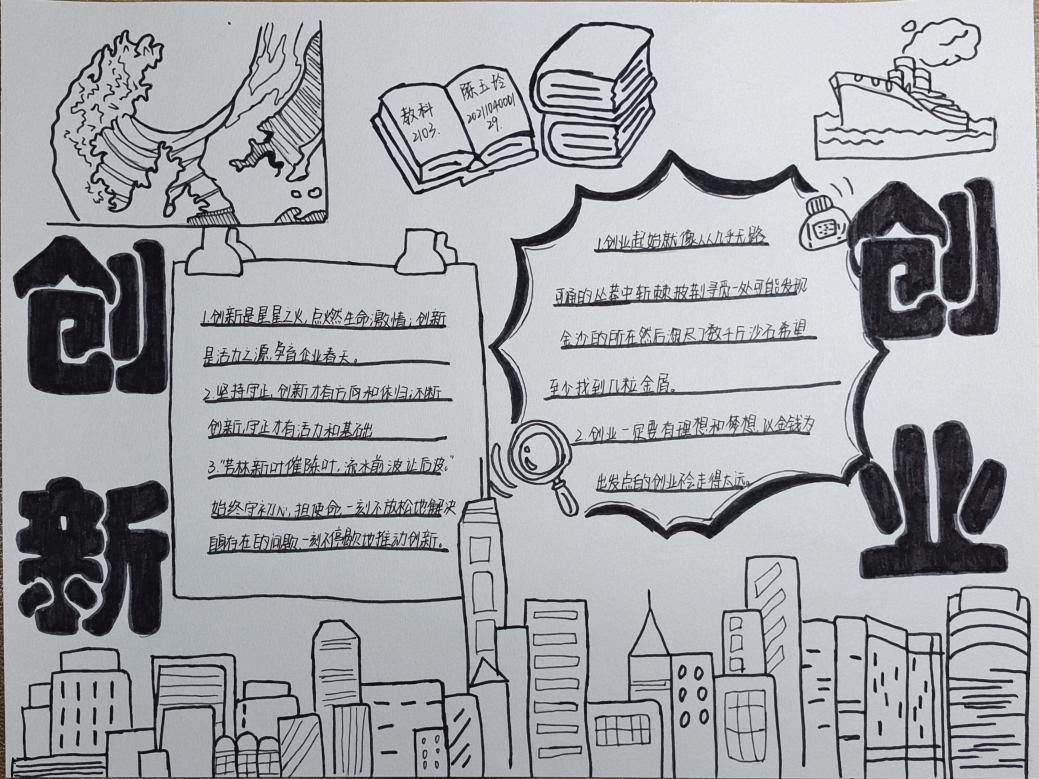 教科
2103.
陈五拎
20211040001
29.
创
新
1.创新是星星之火,点燃生命激情;创新
是活力之源,孕育企业春天。
2.坚持守正,创新才有方向和依归;不断
创新,守正才有活力和基础
3."芳林新叶催陈叶,流水前波让后波。"
始终守初心,担使命,一刻不放松地解决
自身存在的问题,一刻不停歇地推动创新。
创
业
1.创业起始就像从人几乎无路
可通的丛莽中斩棘披荆寻觅一处可能发现
金沙的所在然后淘尽了数千斤沙石希望
至少找到几粒金屑。
2.创业一定要有理想和梦想,以金钱为
出发点的创业不会走得太远。